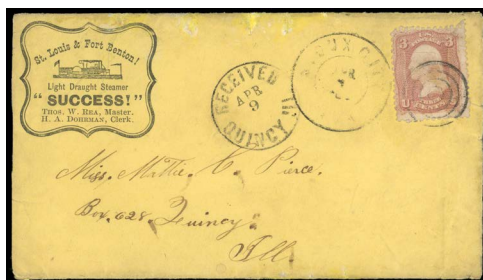 St. Louis & Fort Benton!
Light Draught Steamer
"SUCCESS!"
THOS. W. REA, Master.
H. A. DOHRMAN, Clerk.
RECEIVED
APR
9
QUINCY Ill
SIOUX CITY
APR
3 3
U
Miss. Mattie. C. Pierce.
Box. 628. Quincy.
Ill